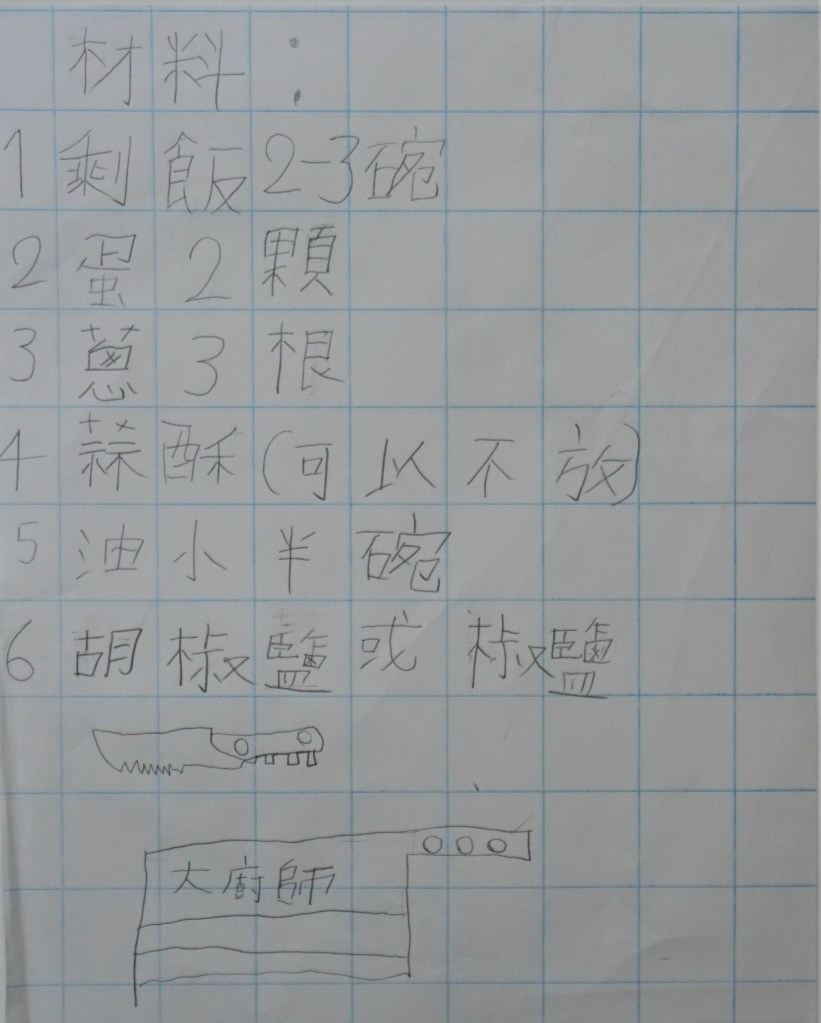 材料：
1 剩飯2-3碗
2 蛋2顆
3 蔥3根
4 蒜酥(可以不放)
5 油小半碗
6 胡椒鹽或椒鹽
大廚師